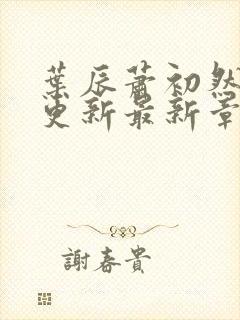 葉辰蕭初然
更新最新章
謝春貴